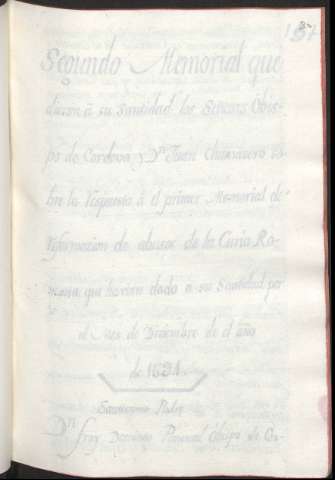 Segundo Memorial que
dieron â su Santidad los Señores Obis-
po de Cordova, y Dn Juan Chumacero so-
bre la respuesta â el primer Memorial de
reformacion de abusos de la Curia Ro-
mana que havian dado a su Santidad por
el Mes de Diciembre de el año
de 1634.
Santissimo Padre
Dn fray Domingo Pimentel Obispo de Cor-